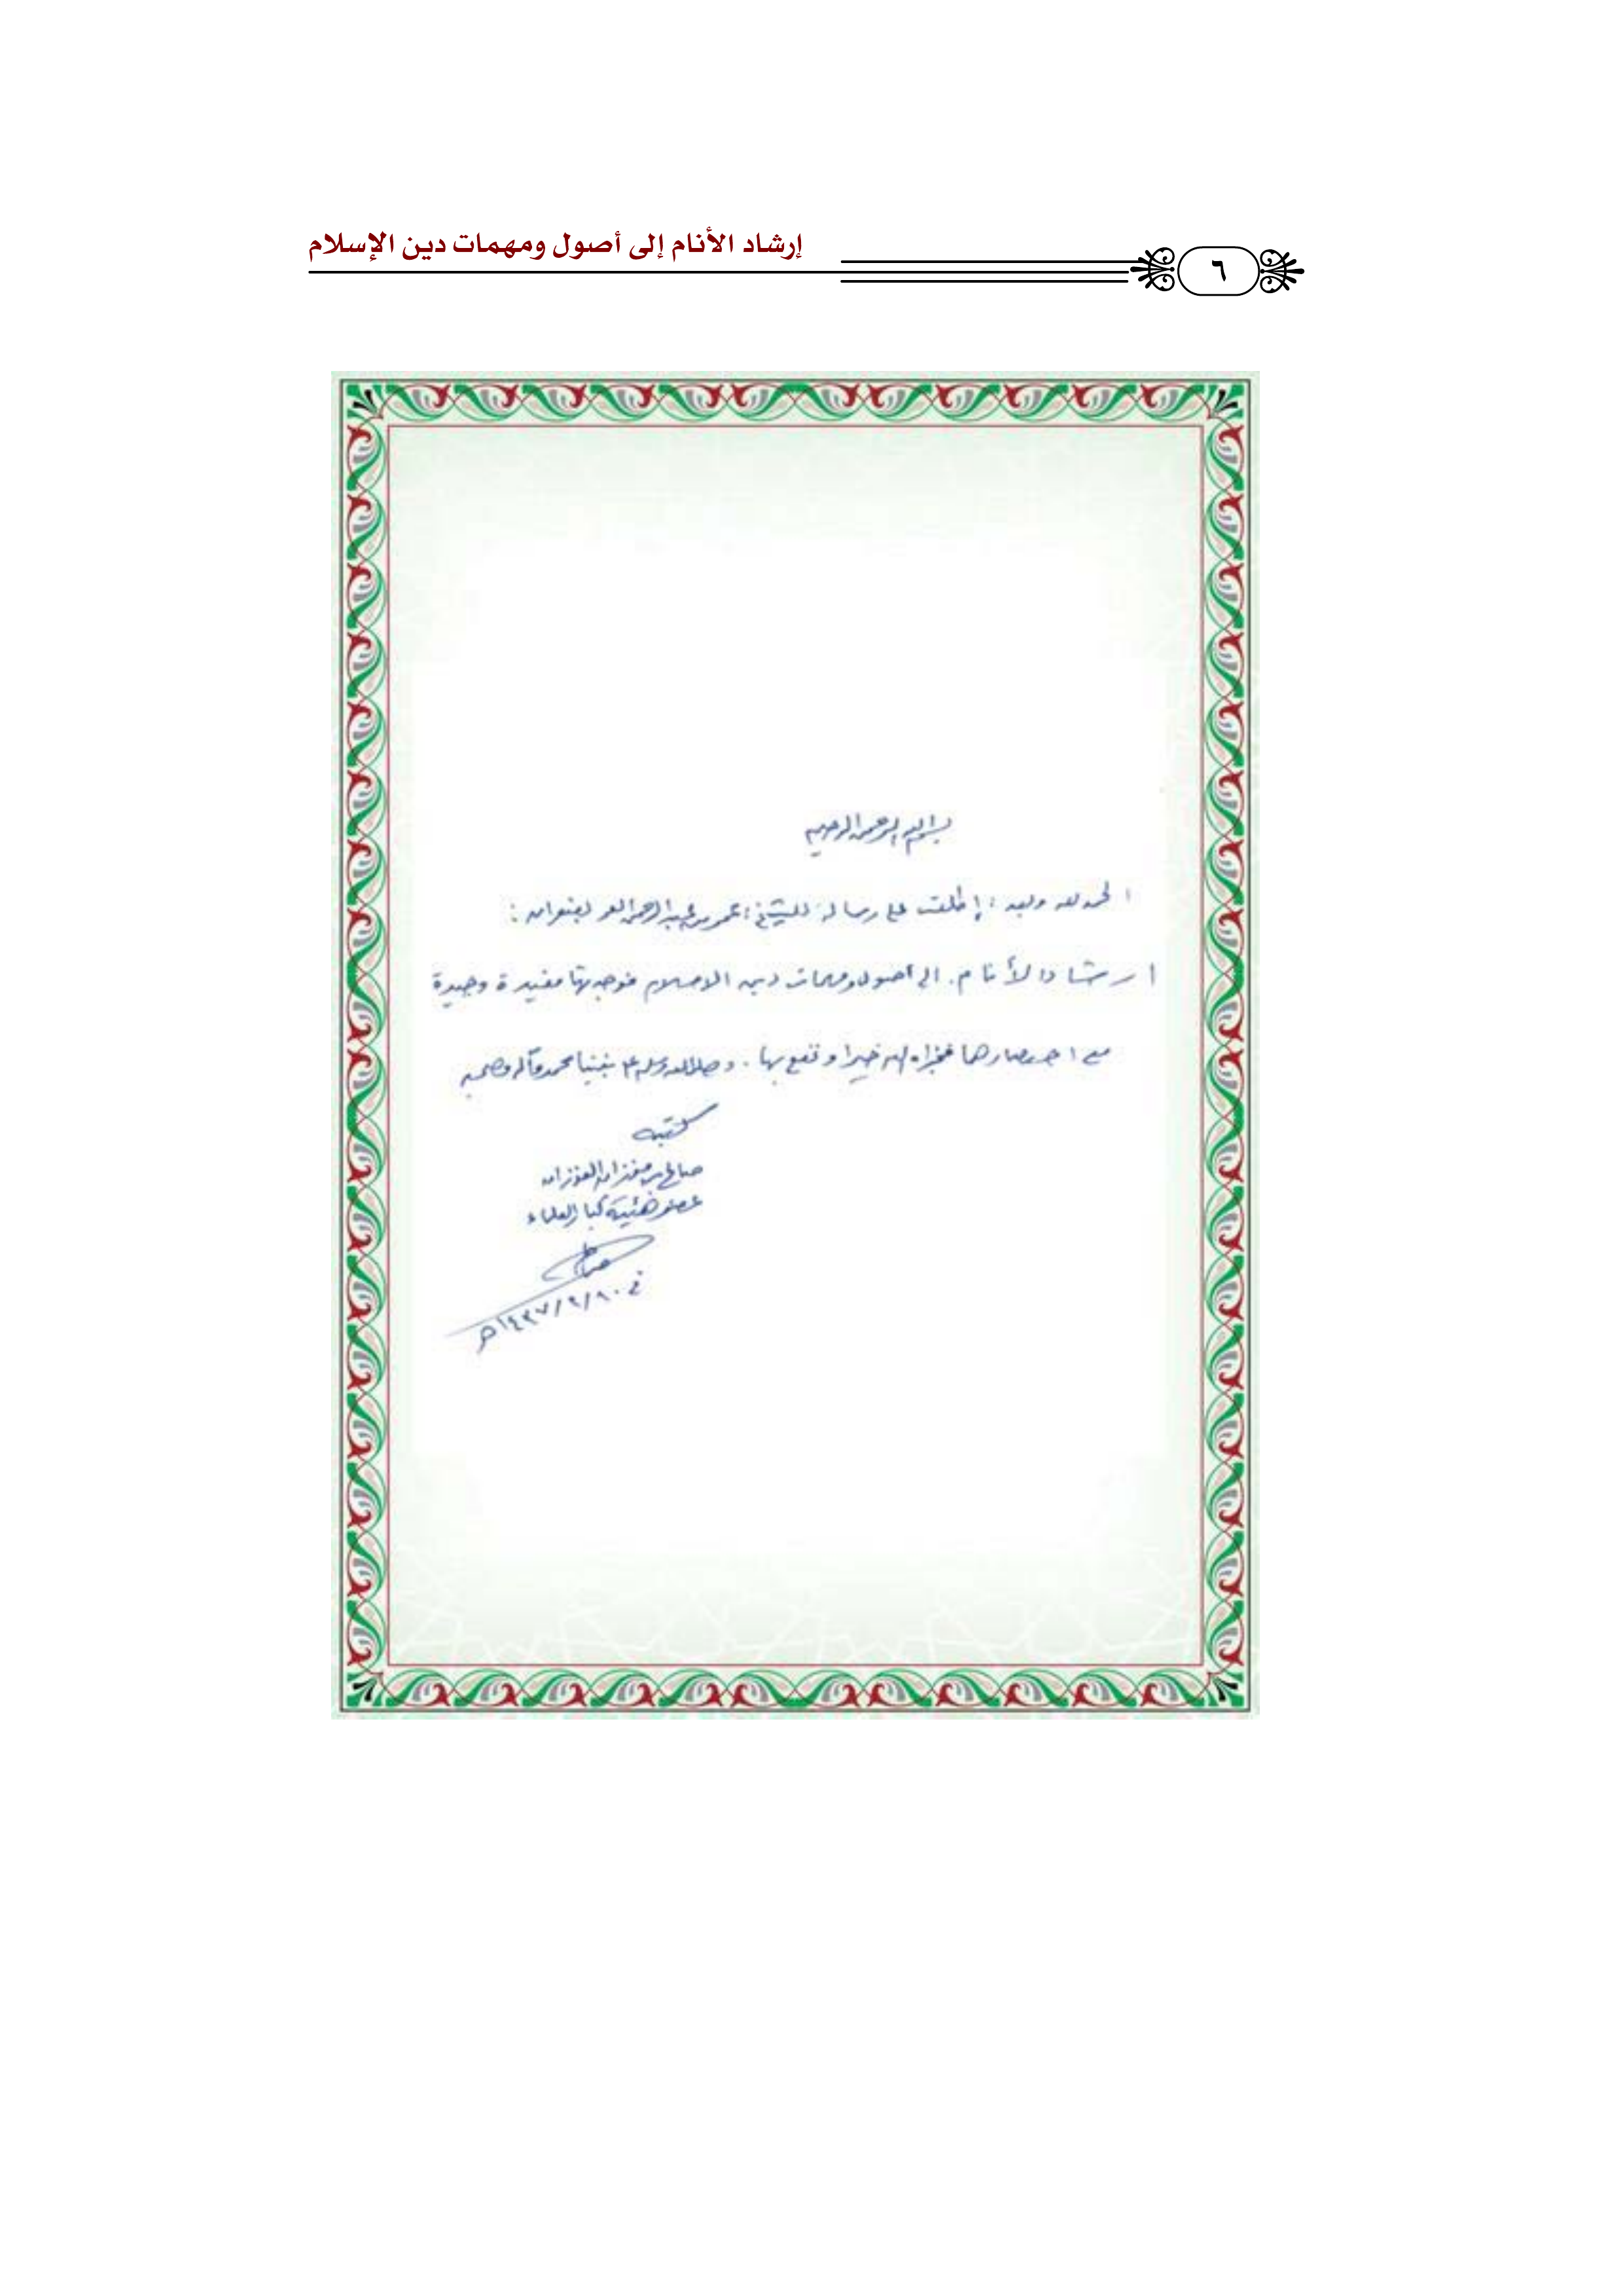 إرشاد الأنام إلى أصول ومهمات دين الإسلام
٦
بسم الله الرحمن الرحيم
الحمد لله وبعد : إطلعت على رسالة للشيخ : عمر بن عبد الرحمن العمر بعنوان :
ارشاد الأنام. الى أصول ومهمات دين الاسلام فوجدتها مفيدة وجيدة
مع اختصارها فجزاه الله خيرا ونفع بها . وصلى الله وسلم على نبينا محمد وآله وصحبه
كتبه
صالح بن فوزان الفوزان
عضو هئية كبار العلماء
صالح
في ١٤٣٧/٢/٨٠هـ